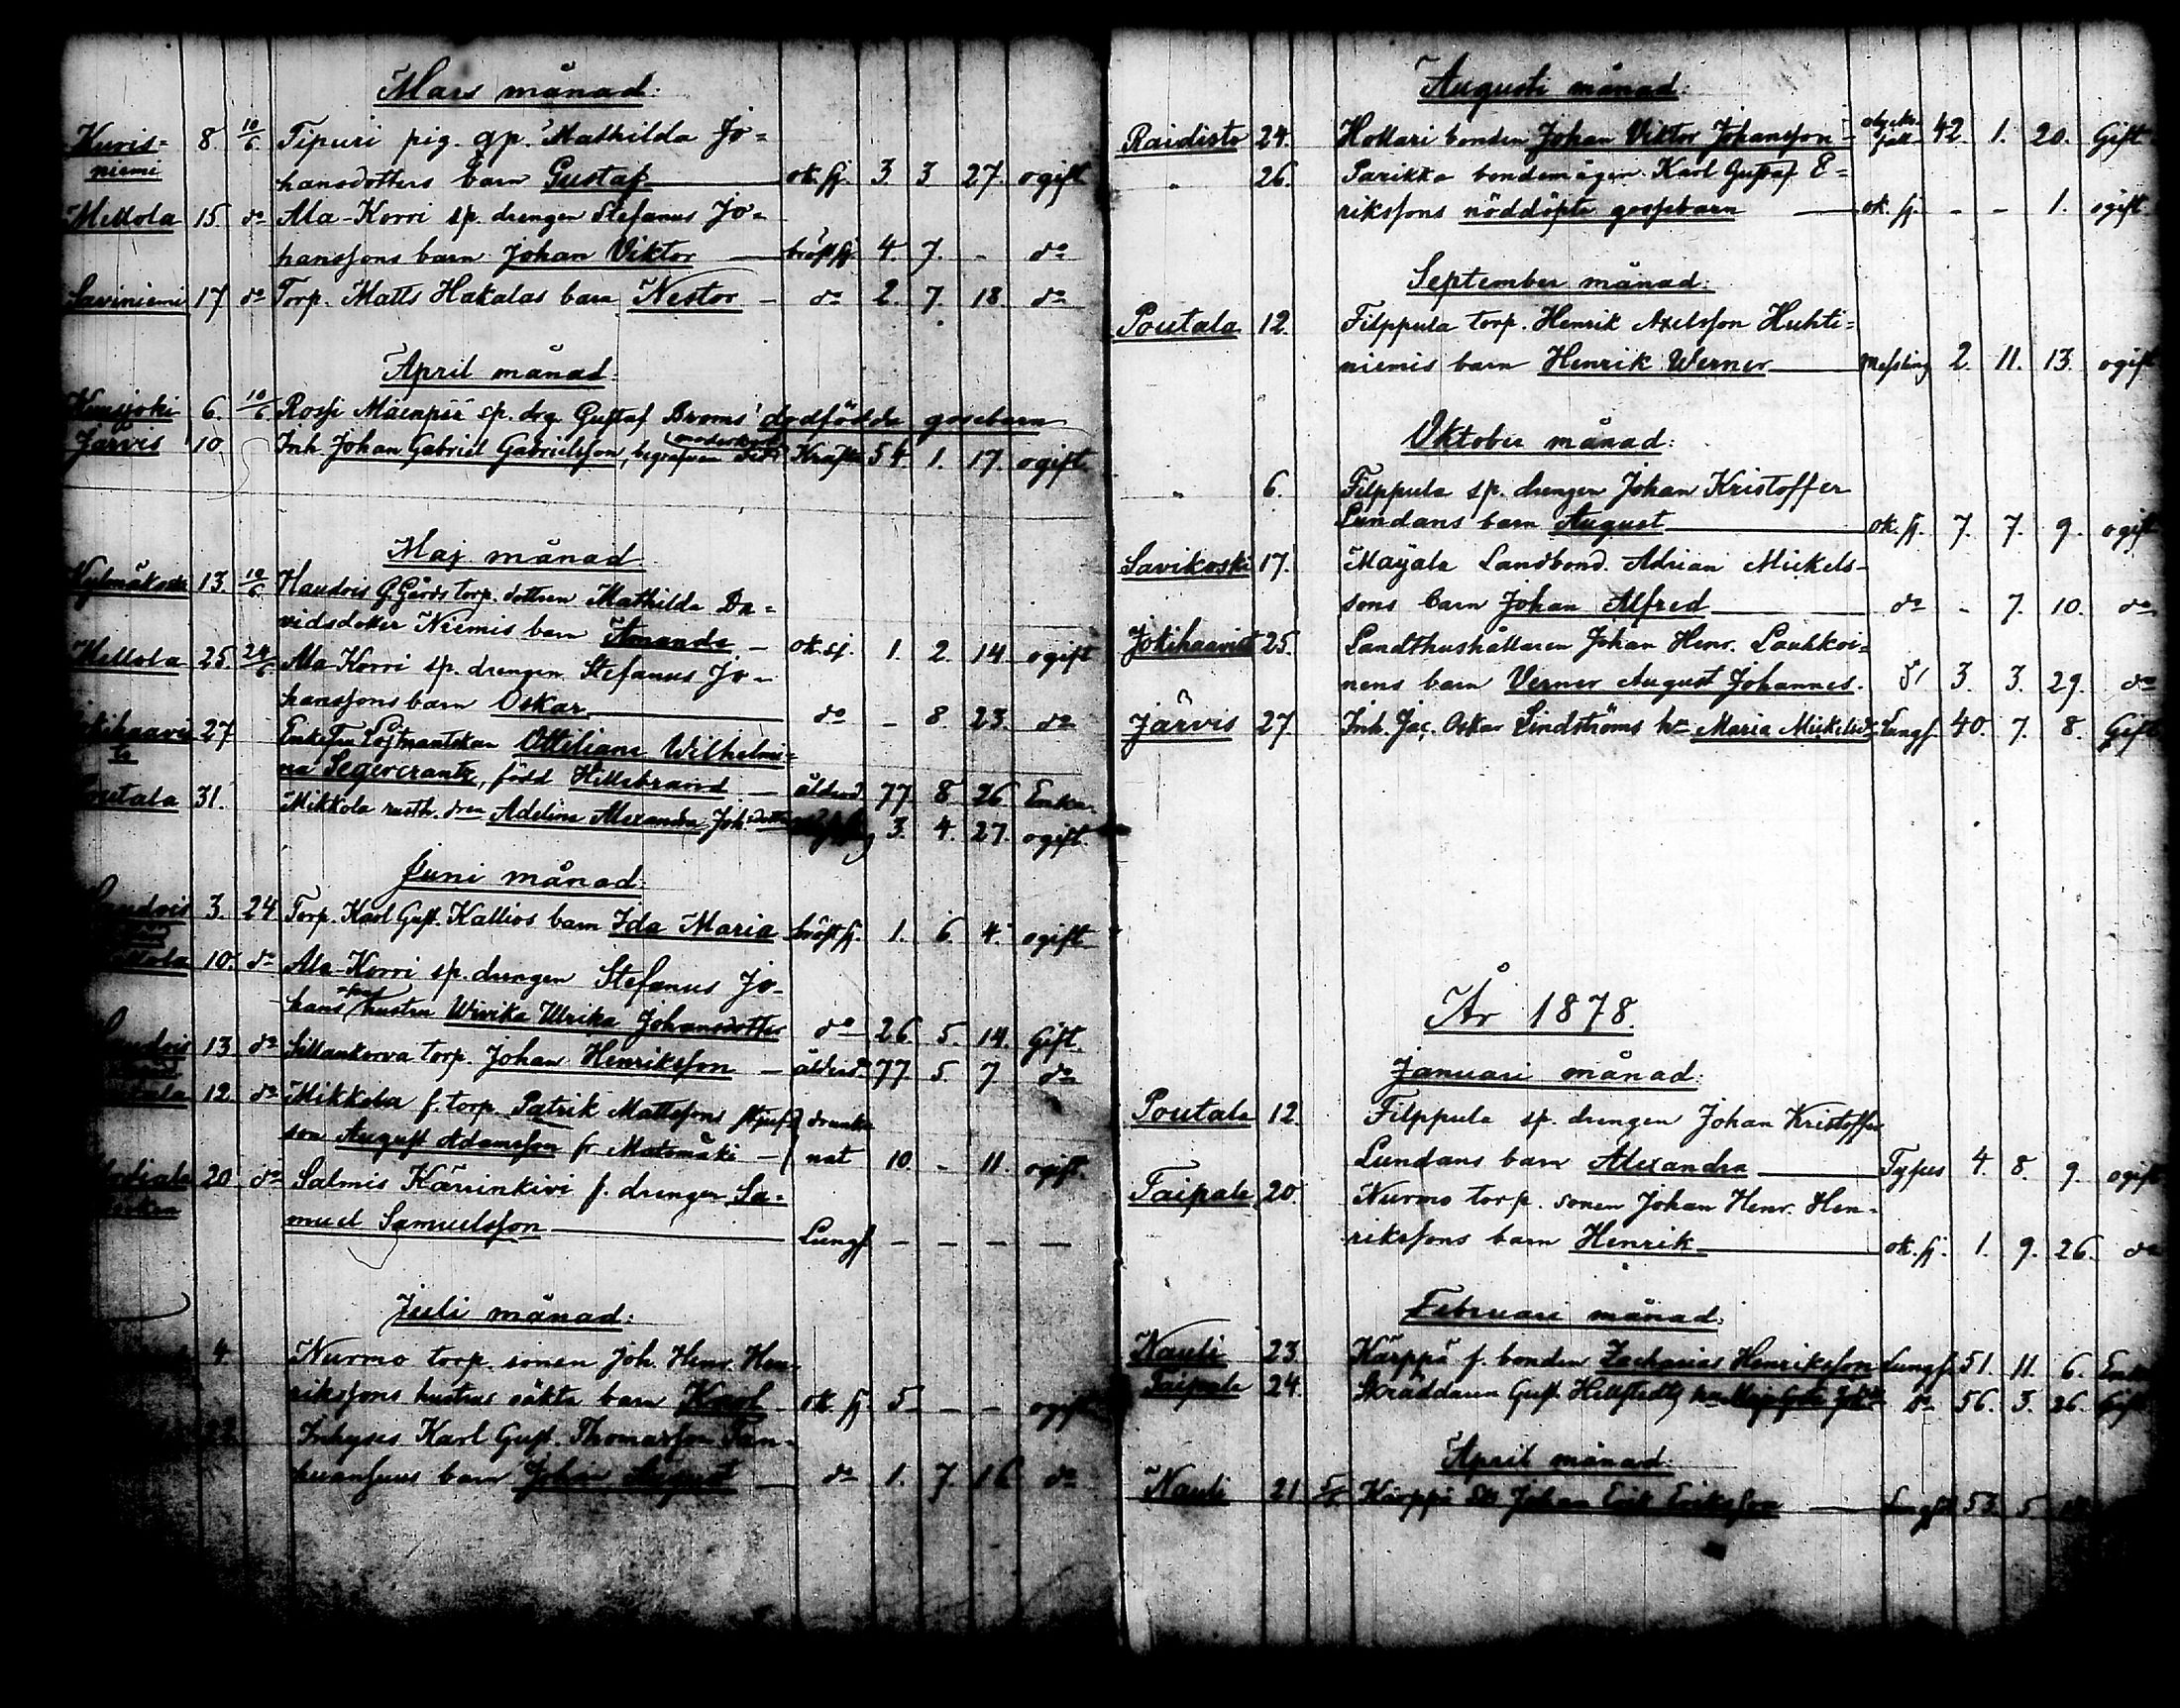 Mars månad:
Kuris= 8. 10/6 Tipuri pig. gp. Mathilda Jo=
niemi hansdotters barn Gustaf ok. sj. 3. 3 27. ogift
Mellola 15. do Ala-Korri sp. drengen Stefanus Jo-
hanssons barn Johan Viktor bröst sj. 4. 7. - do
Saviniemi 17 do Torp. Matts Hakalas barn Nestor do 2. 7. 18 do
April månad:
6. 10/6 sp. drg. Gustaf Broms dödfödde gossebarn
Järvis 10 Inh. Johan Gabriel Gabrielsson, begrafven Kräfta 54. 1. 17. ogift
Maj månad
13. 10/6 Haudois G.Gårds torp. dottren Mathilda Da=
vidsdotter Niemis barn Amanda ok. sj. 1. 2. 14 ogift
Mellola 25. 24/6 Ala-Korri sp. drengen Stefanus Jo-
hanssons barn Oskar do - 8 23. do
27 Enkefru Löjtnantskan Ottiliana Wilhelmi=
na Segercrantz, född Hillebrand ålderd. 77. 8 26 Enka
Poutala 31. Mikkola rusth. Adelina Alexandra Joh. dotter 3. 4. 27. ogift
Juni månad:
3. 24 Torp. Karl Gust. Kallios barn Ida Maria bröst sj. 1. 6 4. ogift
10. do Ala-Korri sp. drengen Stefanus Jo-
hans sons hustru Wivika Ulrika Johansdotter do 26 5. 14. Gift.
13 do Sillankorva torp. Johan Henriksson ålderd. 77 5. 7 do
12 do Mikkola f. torp. Patrik Mattssons styf drunk
son August Adamsson fr. Matomäki nat 10 - 11. ogift
20 do Salmis Kärrinkivi f. drengen Sa=
muel Samuelsson Lungs. - - - -
Juli månad:
4. Nurmo torp. sonen Joh. Henr. Hen=
rikssons hustrus oäkta barn Karl ok. sj. 5 - - ogift
Inhyses Karl Gust. Thomasson Tan-
barn Johan August do 1. 7. 16 do
Augusti månad:
Raidisto 24. Hollari bonden Johan Viktor Johansson olycks- fall 42. 1. 20. Gift
" 26. Parikka bondemågen Karl Gustaf E=
rikssons nöddöpte gossebarn ok. sj. - - 1. ogift
September månad:
Poutala 12. Filppula torp. Henrik Axelsson Huhti=
niemis barn Henrik Werner Messling 2. 11. 13. ogift
Oktober månad:
" 6. Filppula sp. drengen Johan Kristoffer
Lundans barn August ok. sj. 7. 7. 9. ogift
Savikoski 17. Mayala Landbond. Adrian Mickels-
sons barn Johan Alfred do - 7. 10. do
Jokihaavisto 25. Landthushållaren Johan Henr. Lauhkoi=
nens barn Verner August Johannes. 3. 3. 29. do
Järvis 27. Inh. Jac. Oskar Lindströms h-u Maria Mickelsdr. Lungs. 40. 7. 8. Gift
År 1878.
Januari månad:
Poutala 12. Filppula sp. drengen Johan Kristoffer
Lundans barn Alexandra Tyfus 4. 8. 9. ogift
Taipale 20. Nurmo torp. sonen Johan Henr. Hen-
rikssons barn Henrik ok. sj. 1. 9. 26. do
Februari månad:
Nauli 23. Kärppä f. bonden Zacharias Henriksson Lungs. 51. 11. 6. Enkl.
Taipale 24. Skräddaren Gust. Hellstedts do 56. 3. 26. Gift
April månad:
Nauli 21 Kärppä Johan Erik Eriksson Lungs. 53. 5